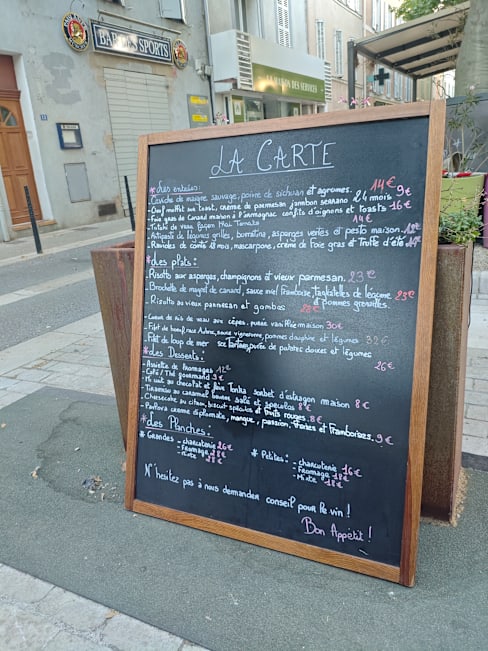 BAR DES SPORTS
LA MAISON DES SERVICES
LA CARTE
* Les entrées:
- Ceviche de maigre sauvage, poivre de sichuan et agrumes. 14€
- Oeuf mollet sur toast, crème de parmesan jambon serrano 24 mois 9€
- Foie gras de Canard maison à l'armagnac confits d'oignons et toasts 16€
- Tataki de veau façon Thaï 14€
- Antipasti de légumes grillés, burratina, asperges vertes et pesto maison.
- Ravioles de comté 18 moi, mascarpone, crème de Foie gras et Truffe d'été
* Les plats:
- Risotto aux asperges, champignons et vieux parmesan. 23€
- Brochette de magret de canard, sauce miel framboise, tagliatelles de légume et pommes grenailles. 23€
- Risotto au vieux parmesan et gambas 28€
- Coeur de ris de veau aux cèpes, purée vanille maison 30€
- Filet de boeuf, sauce vigneronne, pommes dauphine et légumes 32€
- Filet de loup de mer purée de patates douces et légumes
26€
* Les Desserts:
- Assiette de fromages 12€
- Café / Thé gourmand 9€
- Mi cuit au chocolat et fève Tonka sorbet d'estragon maison 8€
- Tiramisu au caramel beurre salé et speculos 8€
- Cheesecake au citron, biscuit spéculos et fruits rouges. 8€
- Pavlova crème diplomate, mangue, passion, fraises et framboises. 9€
* Les Planches:
* Grandes - charcuterie 26€
- Fromage 18€
- Mixte 28€
* Petites: - charcuterie 16€
- Fromage 18€
- Mixte 18€
N'hésitez pas à nous demander conseil pour le vin!
Bon Appétit!